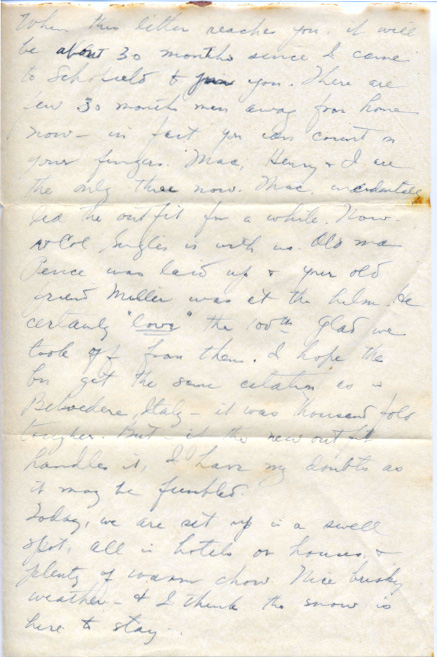 When this letter reaches you it will
be about 30 months since I came
to Schofield & join you. There are
few 30 month men away from home
now – in fact you can count on
your fingers. Mac, Henry & I are
the only three now. Mac, incidentally
led the outfit for a while. Now
Col is with us. Old man
Pence was laid up & your old
friend Miller was at the helm. He
certainly "love" the 100th. Glad we
took off from them. I hope the
bn get the same citation as in
Belvedere, Italy – it was thousand fold
tougher. But if the new outfit
handles it, I have my doubts as
it may be fumbled.
Today, we are set up in a swell
spot, all in hotels or houses &
plenty of warm chow. Nice
weather – & I think the snow is
here to stay.